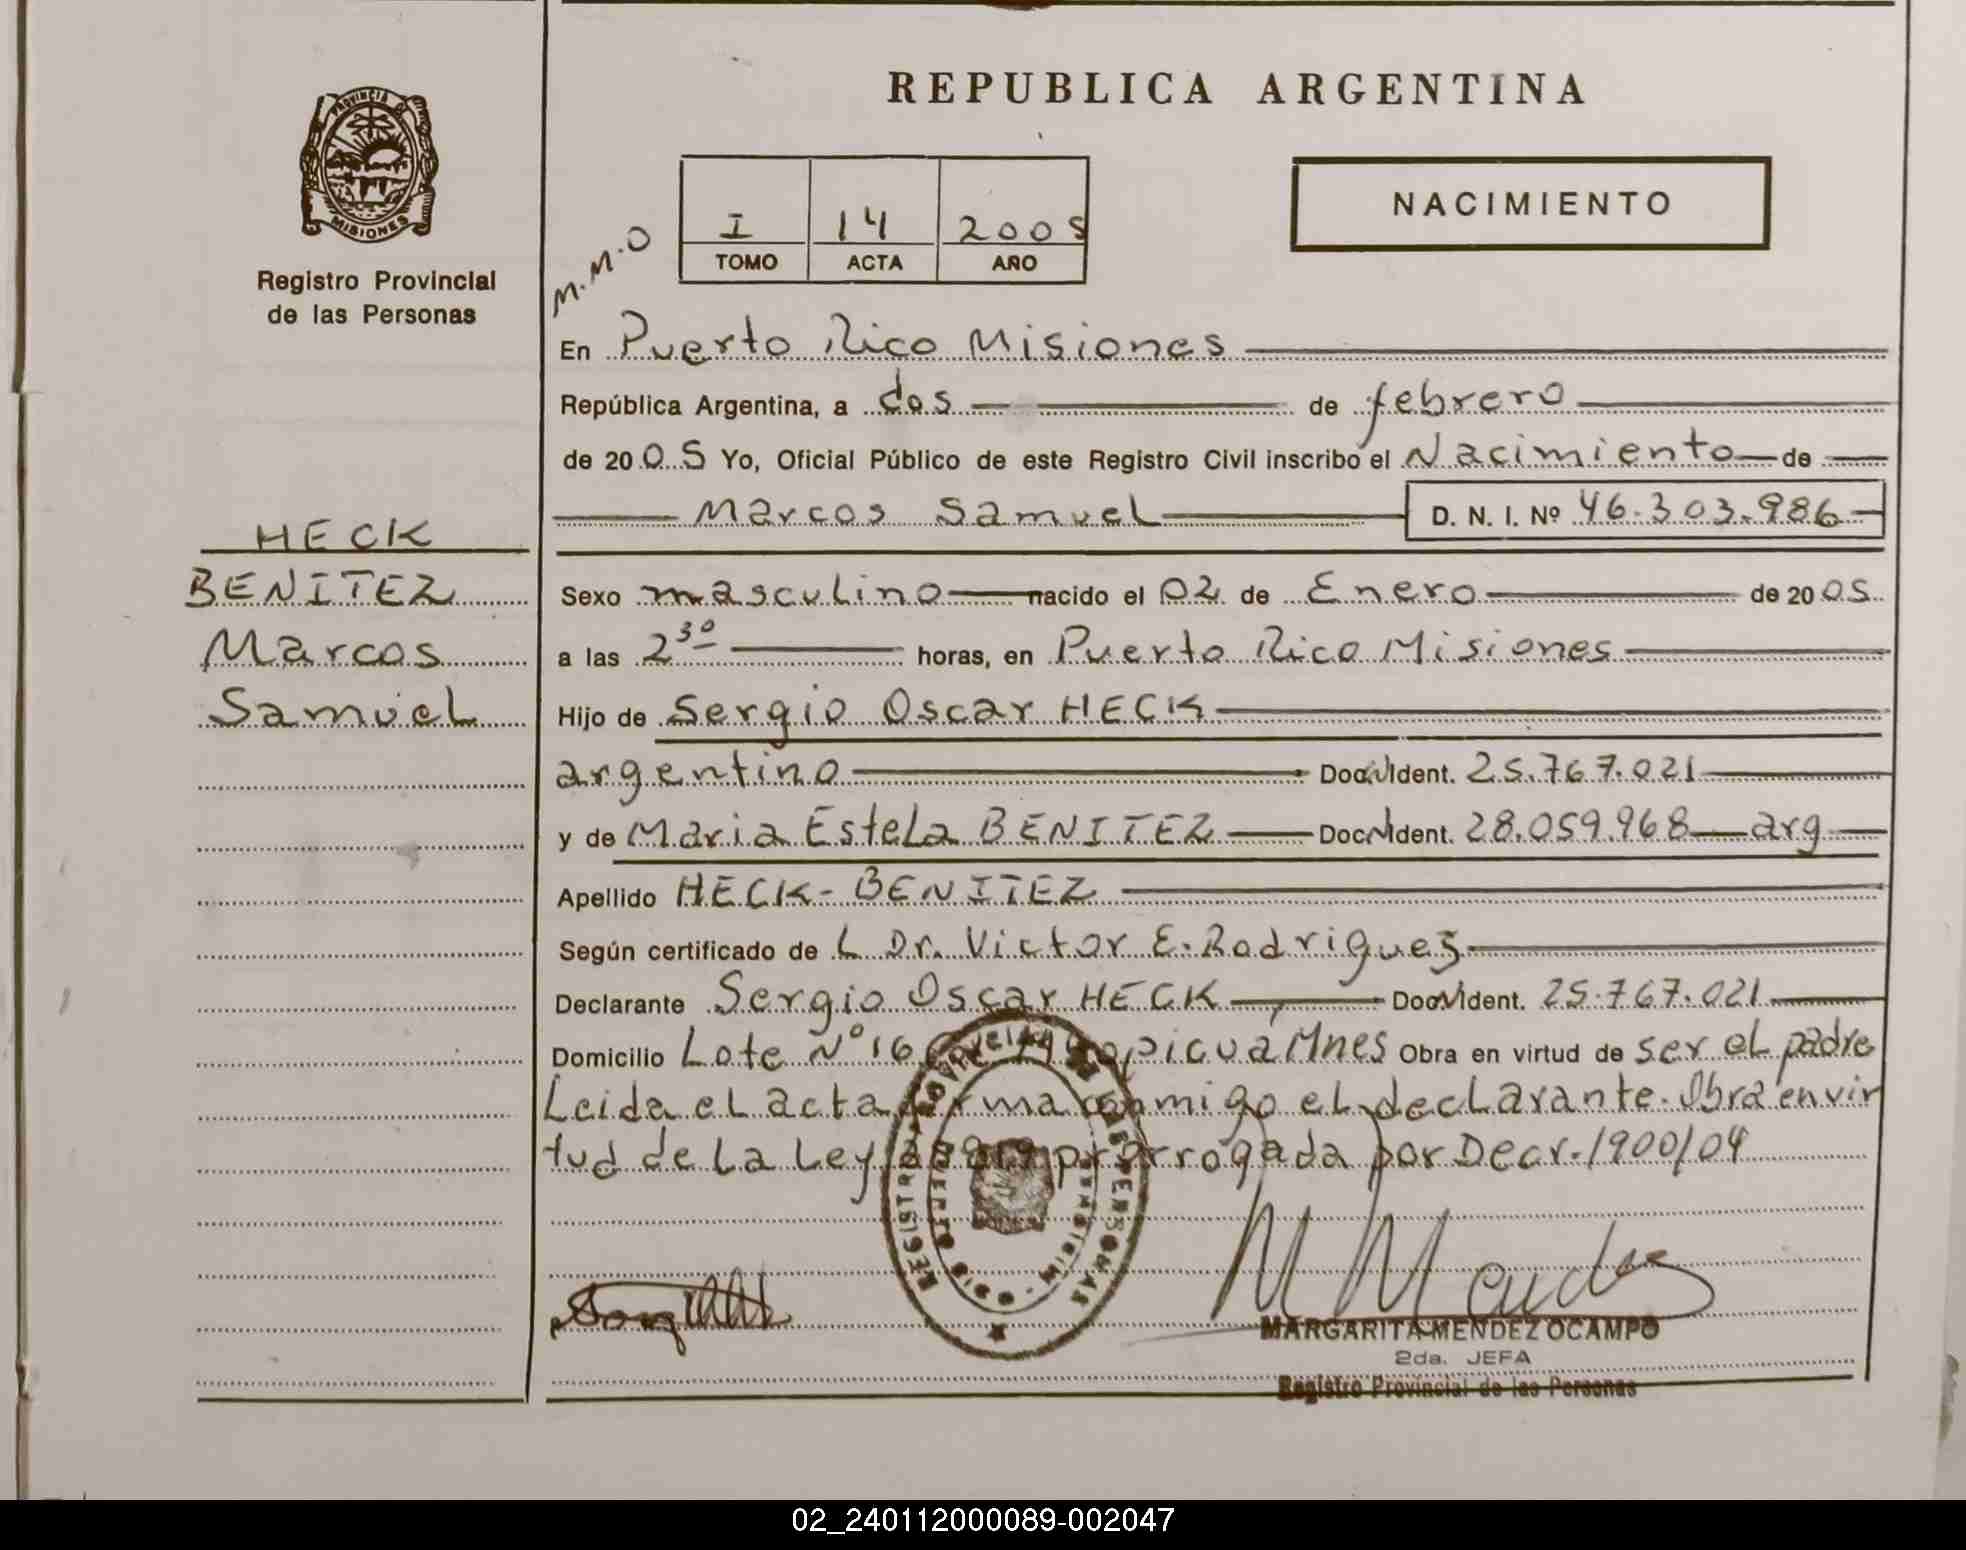 REPUBLICA ARGENTINA
PROVINCIA DE
MISIONES
Registro Provincial
de las Personas
M.M.O
I 14 2005
TOMO ACTA AÑO
NACIMIENTO
En Puerto Rico Misiones
República Argentina, a dos de febrero
de 2005 Yo, Oficial Público de este Registro Civil inscribo el Nacimiento de
Marcos Samuel D. N. I. Nº 46.303.986
HECK
BENITEZ
Marcos
Samuel
Sexo masculino nacido el 02 de Enero de 2005
a las 2 30 horas, en Puerto Rico Misiones
Hijo de Sergio Oscar HECK
argentino Doc. Ident. 25.767.021
y de Maria Estela BENITEZ Doc. Ident. 28.059.968 arg
Apellido HECK - BENITEZ
Según certificado de L Dr. Victor E. Rodriguez
Declarante Sergio Oscar HECK Doc. Ident. 25.767.021
Domicilio Lote Nº 16 Mnes Obra en virtud de ser el padre
Leida el acta firma conmigo el declarante. Obra en vir
tud de La Ley prorrogada por Decr. 1900/04
REGISTRO PROVINCIAL DE LAS PERSONAS
MARGARITA MENDEZ OCAMPO
2da. JEFA
Registro Provincial de las Personas
02_240112000089-002047